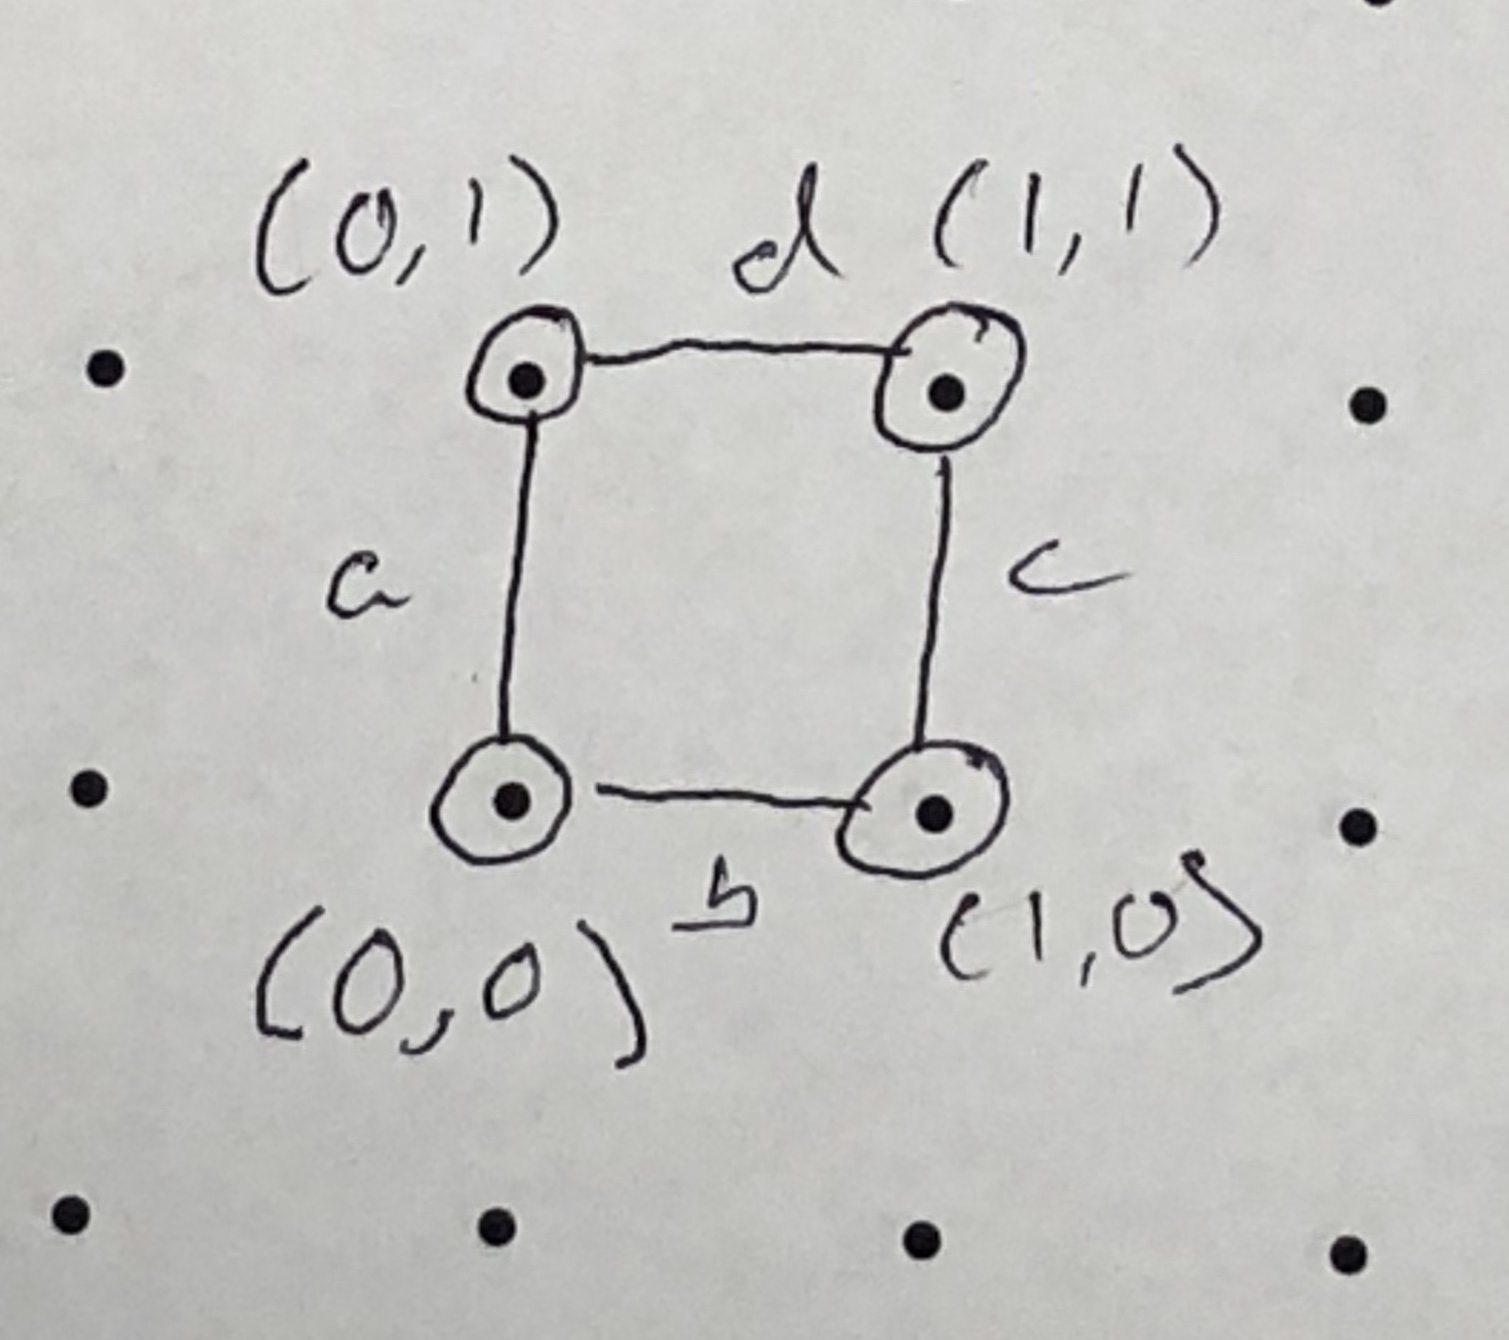 (0,1) d (1,1)
a c
(0,0) b (1,0)